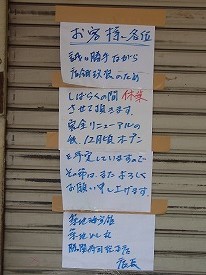 お客様各位
誠に勝手ながら
店舗改装のため
しばらくの間 休業
させて頂きます。
完全リニューアルの
後、12月頃オープン
を予定していますので
その節は、またよろしく
お願い申し上げます。
築地
築地
店長